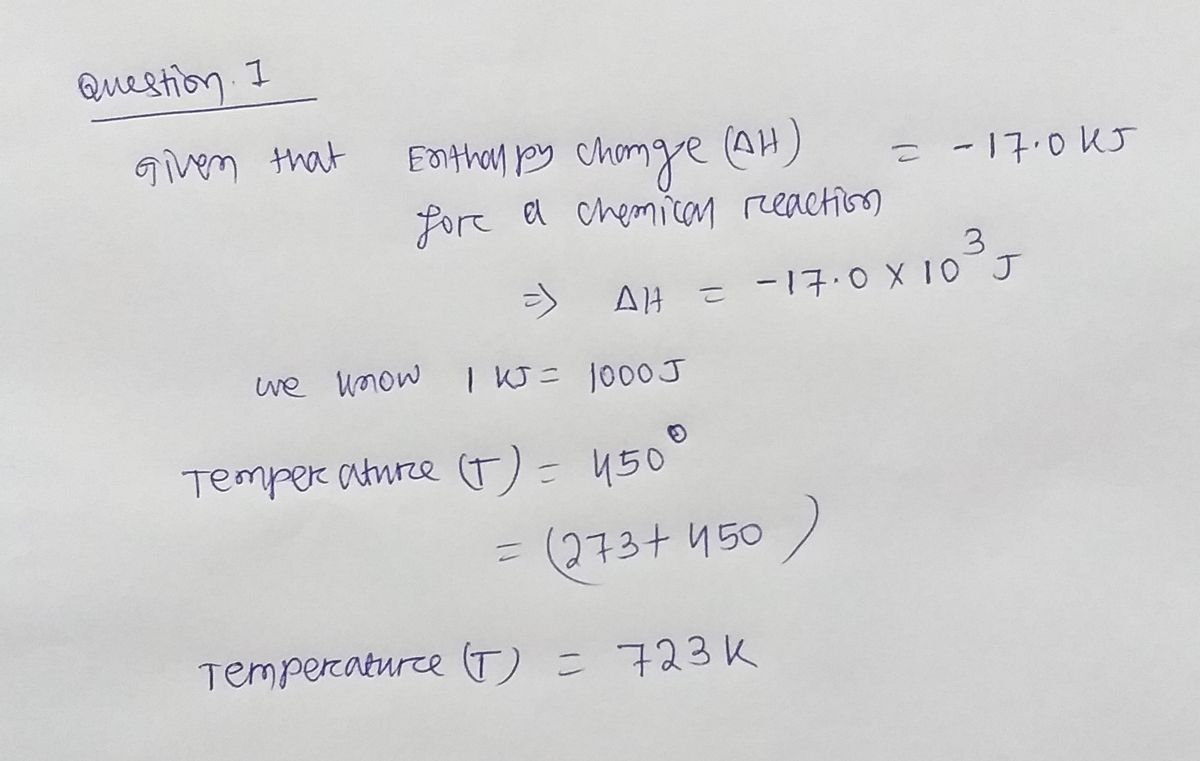 Question. 1
Given that Enthalpy change (ΔH) = -17.0 KJ
for a chemical reaction
=> ΔH = -17.0 X 10³ J
we know 1 KJ = 1000 J
Temperature (T) = 450°
= (273 + 450)
Temperature (T) = 723 K